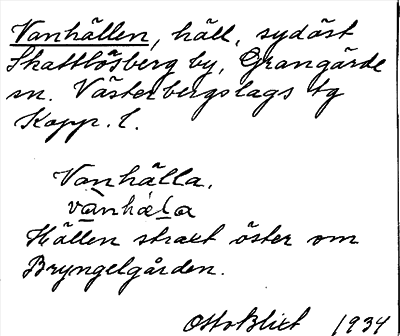 Vanhällen, häll, sydöst
Skattlösberg by, Grangärde
sn. Västerbergslags tg
Kopp. l.
Vanhälla.
Hällen strax öster om
Bryngelgården.
Otto Blixt 1934